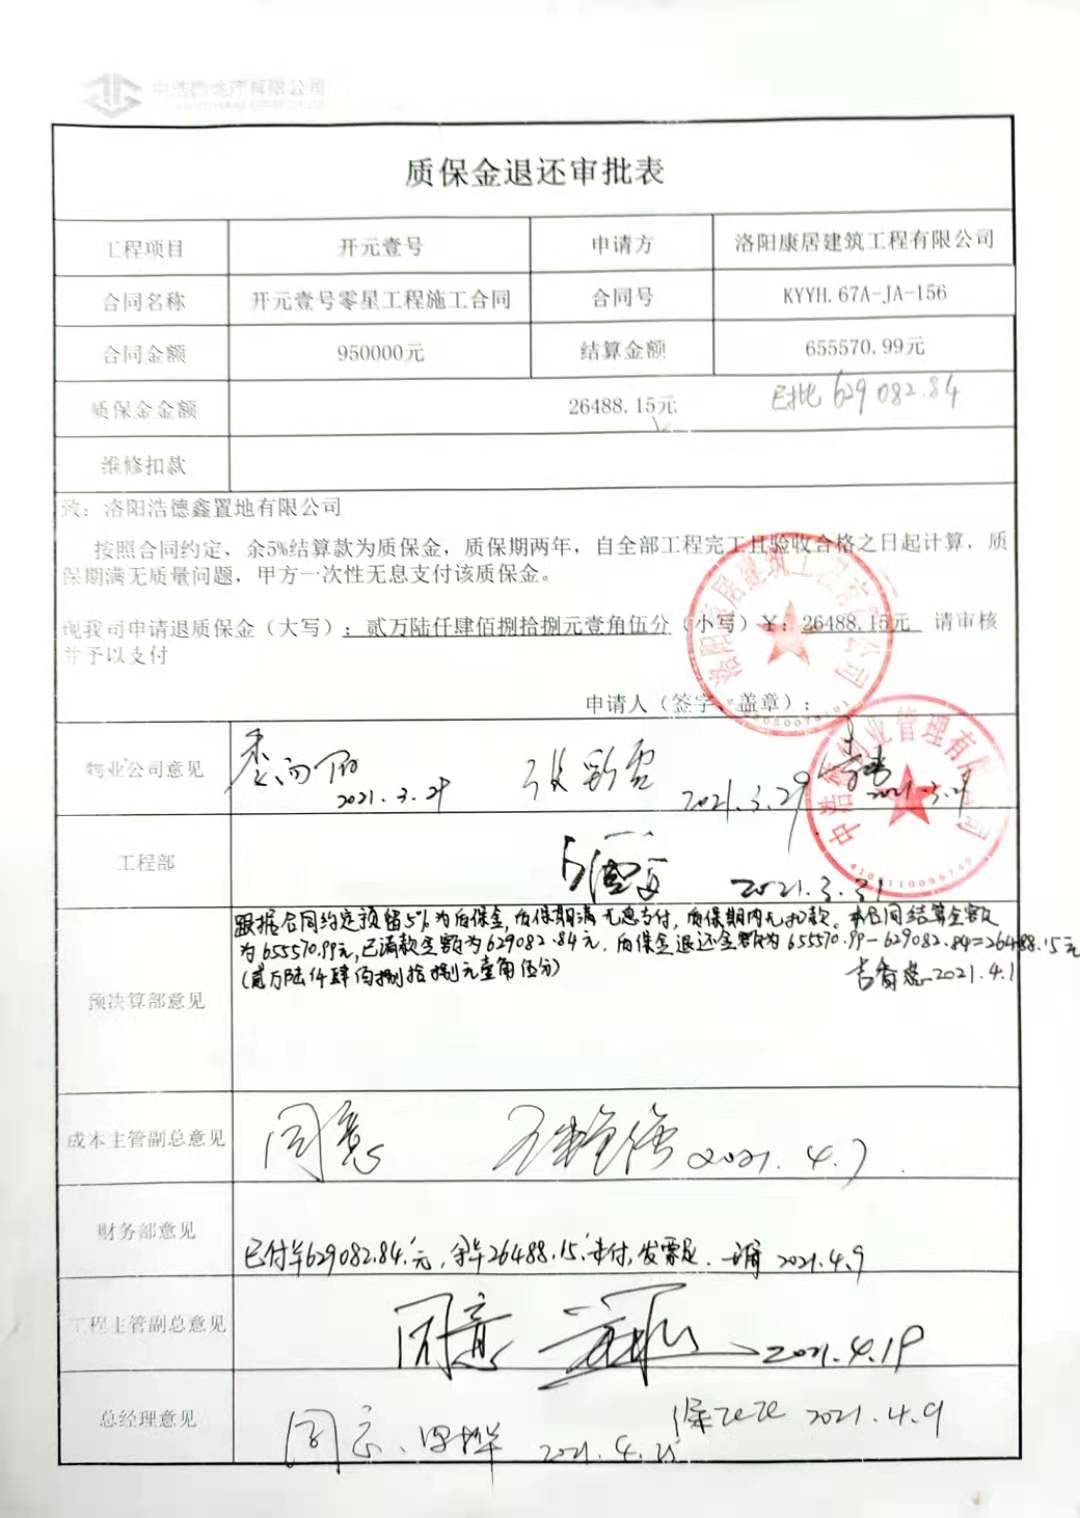 中浩德地产有限公司
质保金退还审批表
工程项目 开元壹号 申请方 洛阳康居建筑工程有限公司
合同名称 开元壹号零星工程施工合同 合同号 KYYH.67A-JA-156
合同金额 950000元 结算金额 655570.99元
质保金金额 26488.15元 已批 629082.84
维修扣款
致：洛阳浩德鑫置地有限公司
按照合同约定，余5%结算款为质保金，质保期两年，自全部工程完工且验收合格之日起计算，质
保期满无质量问题，甲方一次性无息支付该质保金。
现我司申请退质保金（大写）：贰万陆仟肆佰捌拾捌元壹角伍分（小写）￥：26488.15元 请审核
并予以支付
申请人（签字、盖章）：
洛阳康居建筑工程有限公司
物业公司意见 2021.3.29 2021.3.29 2021.3.29
中浩德物业管理有限公司
工程部 2021.3.31
跟据合同约定预留5%为质保金，质保期满无息支付，质保期内无扣款。本合同结算金额
为655570.99元，已请款金额为629082.84元，质保金退还金额为655570.99-629082.84=26488.15元
(贰万陆仟肆佰捌拾捌元壹角伍分)
2021.4.1
预决算部意见
成本主管副总意见 同意 2021.4.7
财务部意见 已付￥629082.84元，余￥26488.15未付，发票足. 2021.4.9
工程主管副总意见 同意 2021.4.19
2021.4.9
总经理意见 同意 2021.4.25